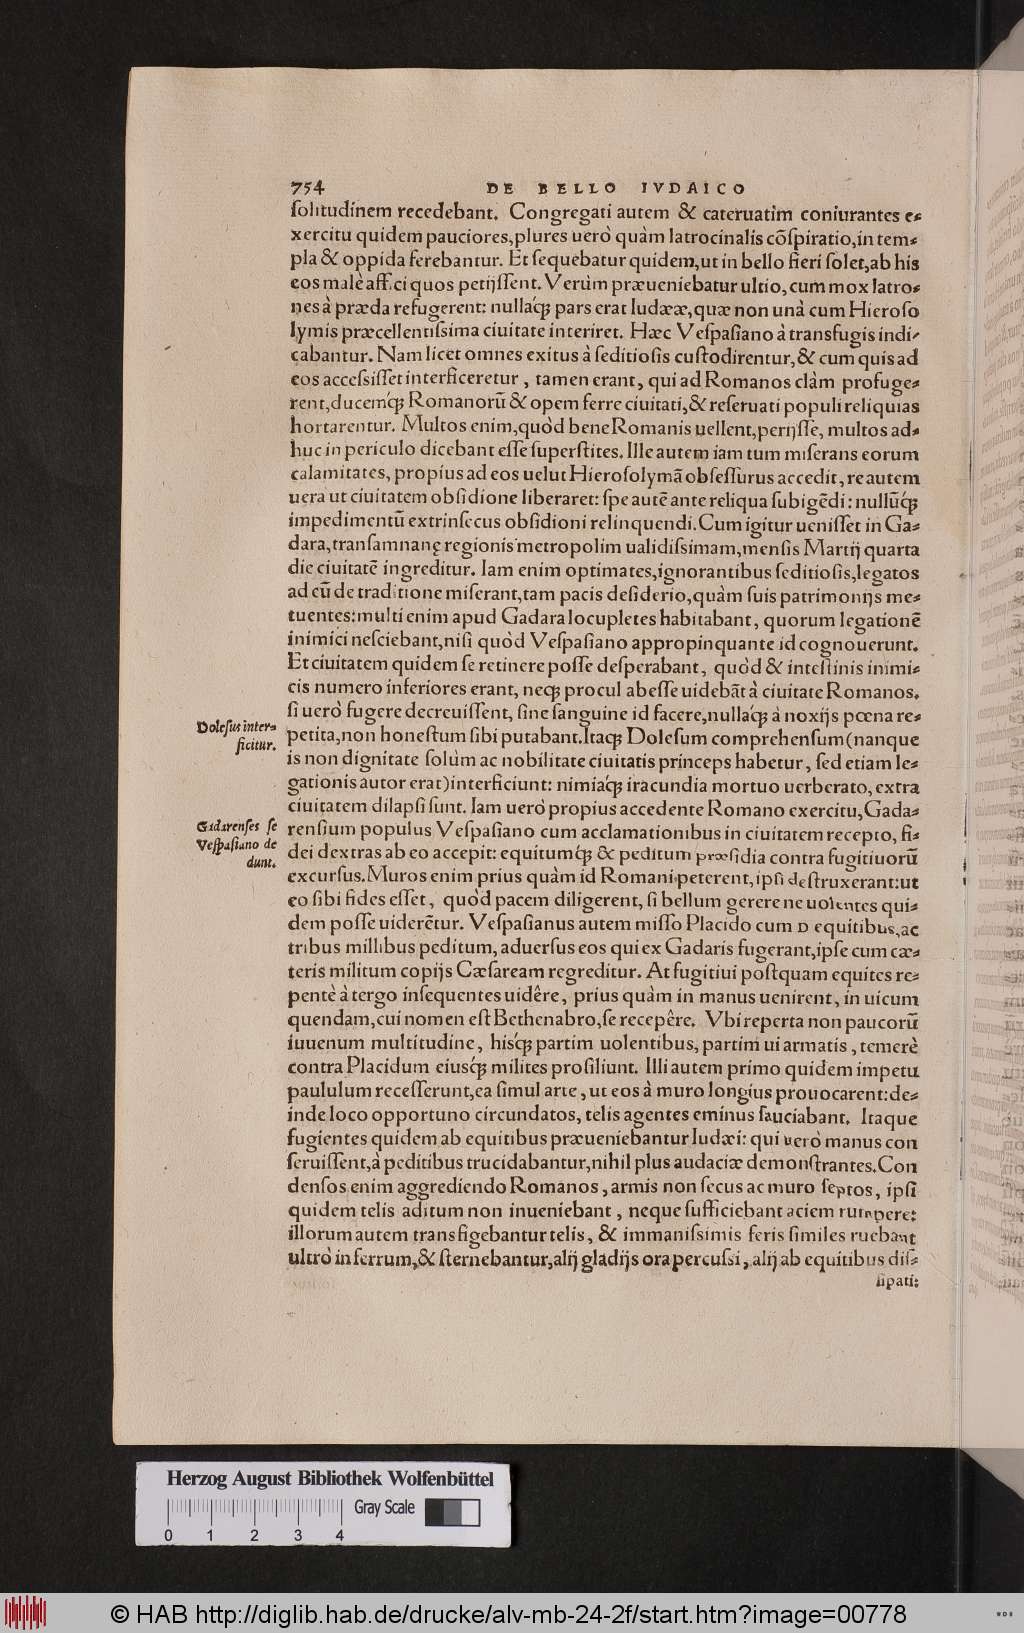 754 DE BELLO IVDAICO
ſolitudinem recedebant. Congregati autem & cateruatim coniurantes e-
xercitu quidem pauciores, plures uerò quàm latrocinalis cõſpiratio, in tem-
pla & oppida ferebantur. Et ſequebatur quidem, ut in bello fieri ſolet, ab his
eos malè affici quos petijſſent. Verùm præueniebatur ultio, cum mox latro-
nes à præda refugerent: nullaq́; pars erat Iudææ, quæ non unà cum Hieroſo
lymis præcellentiſsima ciuitate interiret. Hæc Veſpaſiano à transfugis indi-
cabantur. Nam licet omnes exitus à ſeditioſis cuſtodirentur, & cum quis ad
eos acceſsiſſet interficeretur, tamen erant, qui ad Romanos clàm profuge-
rent, ducemq́; Romanorũ & opem ferre ciuitati, & reſeruati populi reliquias
hortarentur. Multos enim, quòd bene Romanis uellent, perijſſe, multos ad-
huc in periculo dicebant eſſe ſuperſtites. Ille autem iam tum miſerans eorum
calamitates, propius ad eos uelut Hieroſolymã obſeſſurus accedit, re autem
uera ut ciuitatem obſidione liberaret: ſpe autẽ ante reliqua ſubigẽdi: nullũq́;
impedimentũ extrinſecus obſidioni relinquendi. Cum igitur ueniſſet in Ga-
dara, tranſamnanę regionis metropolim ualidiſsimam, menſis Martij quarta
die ciuitatẽ ingreditur. Iam enim optimates, ignorantibus ſeditioſis, legatos
ad eũ de traditione miſerant, tam pacis deſiderio, quàm ſuis patrimonijs me-
tuentes: multi enim apud Gadara locupletes habitabant, quorum legationẽ
inimici neſciebant, niſi quòd Veſpaſiano appropinquante id cognouerunt.
Et ciuitatem quidem ſe retinere poſſe deſperabant, quòd & inteſtinis inimi-
cis numero inferiores erant, neq; procul abeſſe uidebãt à ciuitate Romanos.
ſi uerò fugere decreuiſſent, ſine ſanguine id facere, nullaq́; à noxijs pœna re-
Doleſus inter-
ficitur.
petita, non honeſtum ſibi putabant. Itaq; Doleſum comprehenſum (nanque
is non dignitate ſolùm ac nobilitate ciuitatis princeps habetur, ſed etiam le-
gationis autor erat) interficiunt: nimiaq́; iracundia mortuo uerberato, extra
ciuitatem dilapſi ſunt. Iam uerò propius accedente Romano exercitu, Gada-
Gadarenſes ſe
Veſpaſiano de
dunt.
renſium populus Veſpaſiano cum acclamationibus in ciuitatem recepto, fi-
dei dextras ab eo accepit: equitumq́; & peditum præſidia contra fugitiuorũ
excurſus. Muros enim prius quàm id Romani peterent, ipſi deſtruxerant: ut
eo ſibi fides eſſet, quòd pacem diligerent, ſi bellum gerere ne uolentes qui-
dem poſſe uiderẽtur. Veſpaſianus autem miſſo Placido cum D equitibus, ac
tribus millibus peditum, aduerſus eos qui ex Gadaris fugerant, ipſe cum cæ-
teris militum copijs Cæſaream regreditur. At fugitiui poſtquam equites re-
pentè à tergo inſequentes uidêre, prius quàm in manus uenirent, in uicum
quendam, cui nomen eſt Bethenabro, ſe recepêre. Vbi reperta non paucorũ
iuuenum multitudine, hisq́; partim uolentibus, partim ui armatis, temerè
contra Placidum eiusq́; milites proſiliunt. Illi autem primo quidem impetu
paululum receſſerunt, ea ſimul arte, ut eos à muro longius prouocarent: de-
inde loco opportuno circundatos, telis agentes eminus ſauciabant. Itaque
fugientes quidem ab equitibus præueniebantur Iudæi: qui uerò manus con
ſeruiſſent, à peditibus trucidabantur, nihil plus audaciæ demonſtrantes. Con
denſos enim aggrediendo Romanos, armis non ſecus ac muro ſeptos, ipſi
quidem telis aditum non inueniebant, neque ſufficiebant aciem rumpere:
illorum autem transfigebantur telis, & immaniſsimis feris ſimiles ruebant
ultrò in ferrum, & ſternebantur, alij gladijs ora percuſsi, alij ab equitibus diſ-
ſipati:
Herzog August Bibliothek Wolfenbüttel
Gray Scale
0 1 2 3 4
© HAB http://diglib.hab.de/drucke/alv-mb-24-2f/start.htm?image=00778